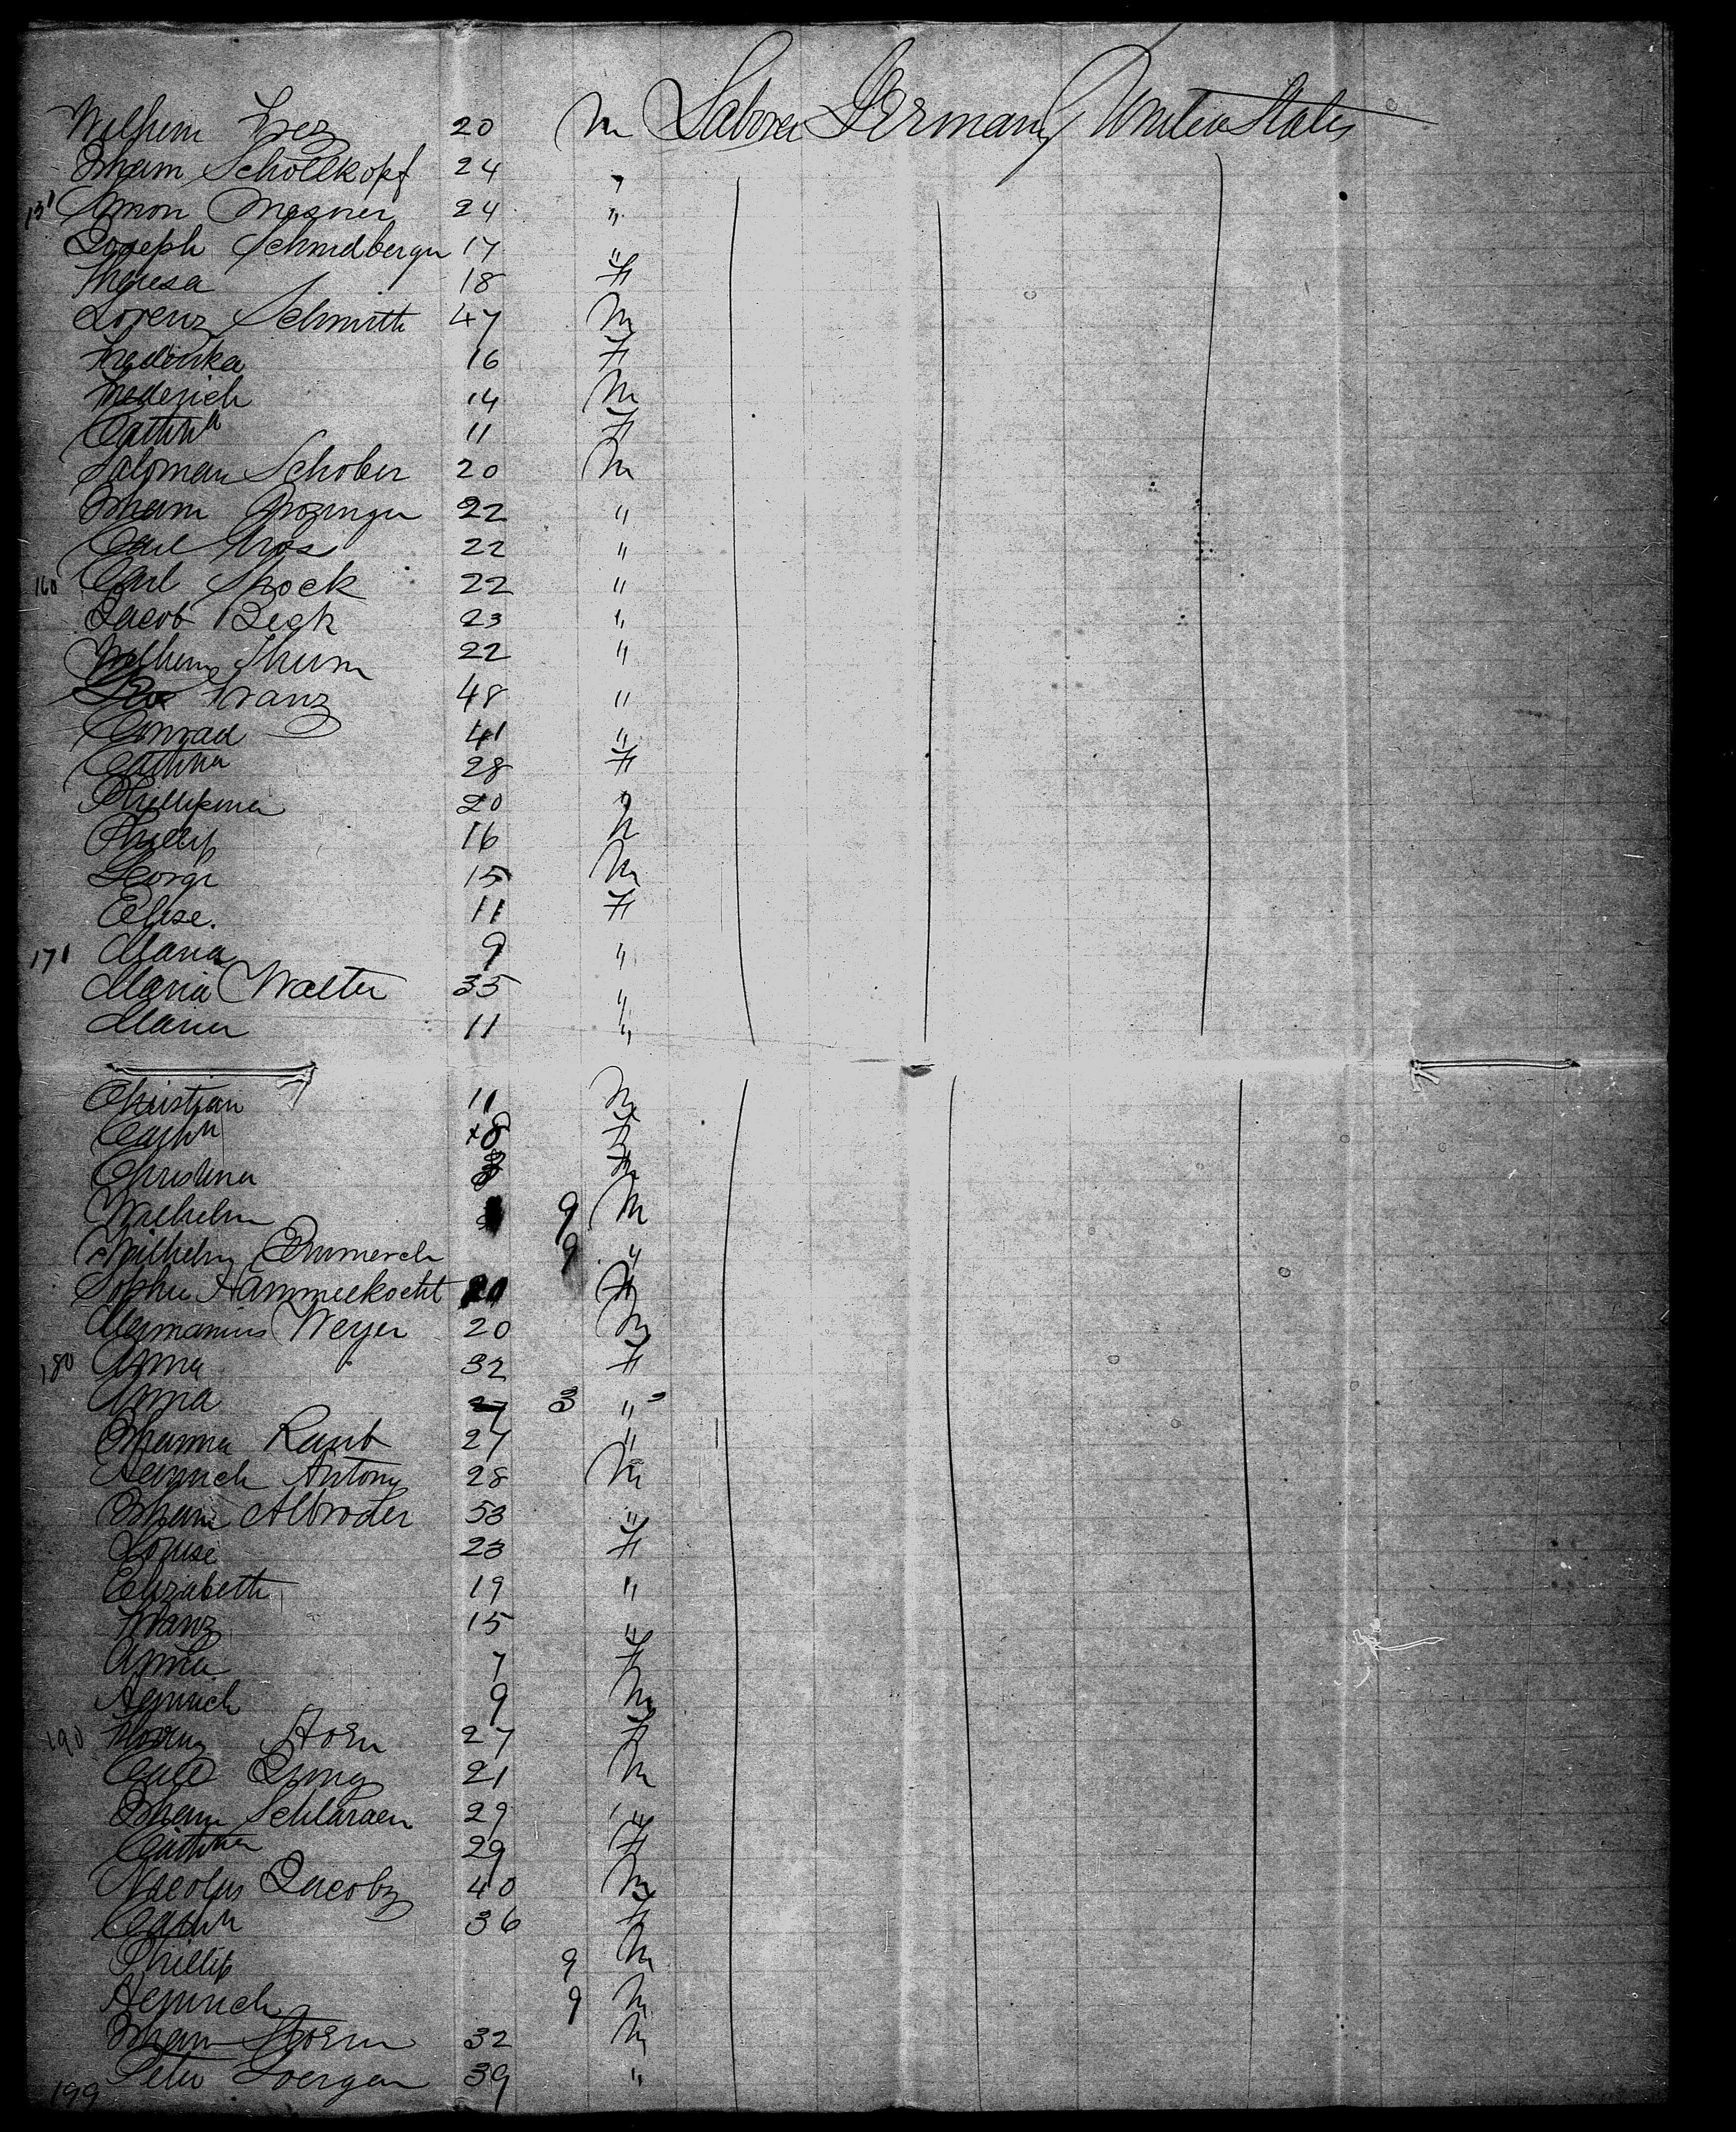 Wilhem 20 M Laborer Germany United States
Joham Schollkopf 24 "
151 Simon Mesner 24 "
Joseph Schmidberger 17 "
Theresa 18 F
Lorenz Schmitth 47 M
Frederika 16 F
Frederich 14 M
Cathna 11 F
Saloman Schober 20 M
Joham Grozinger 22 "
Carl Gros 22 "
160 Carl Stock 22 "
Jacob Beck 23 "
Wilhem Thum 22 "
Franz 48 "
Conrad 41 "
Cathna 28 F
Phillipina 20 "
Phillip 16
George 15 M
Elise. 11 F
171 Maria 9 "
Maria Walter 35 "
Maria 11 "
Christian 11 M
Cathn 8 F
Christina
Wilhelm 9 M
Wilhelm Emmerch 9 "
Sophie Hammelkocht F
Hermanius Weyer 20 M
180 Anna 32 F
Anna 3 "
Johanna Raub 27 "
Heinrich Antony 28 M
Joham Albroder 53 "
Louise 23 F
Elizabeth 19 "
Franz 15 "
Anna 7 F
Heinrich 9 M
190 Horn 27 F
Carl Jung 21 M
Joham Schlaraen 29 "
Cathna 29 F
Nicolus Jacoby 40 M
Cathn 36 F
Phillip 9 M
Heinrich 9 M
Joham Storm 32 M
199 Peter Loergen 39 "